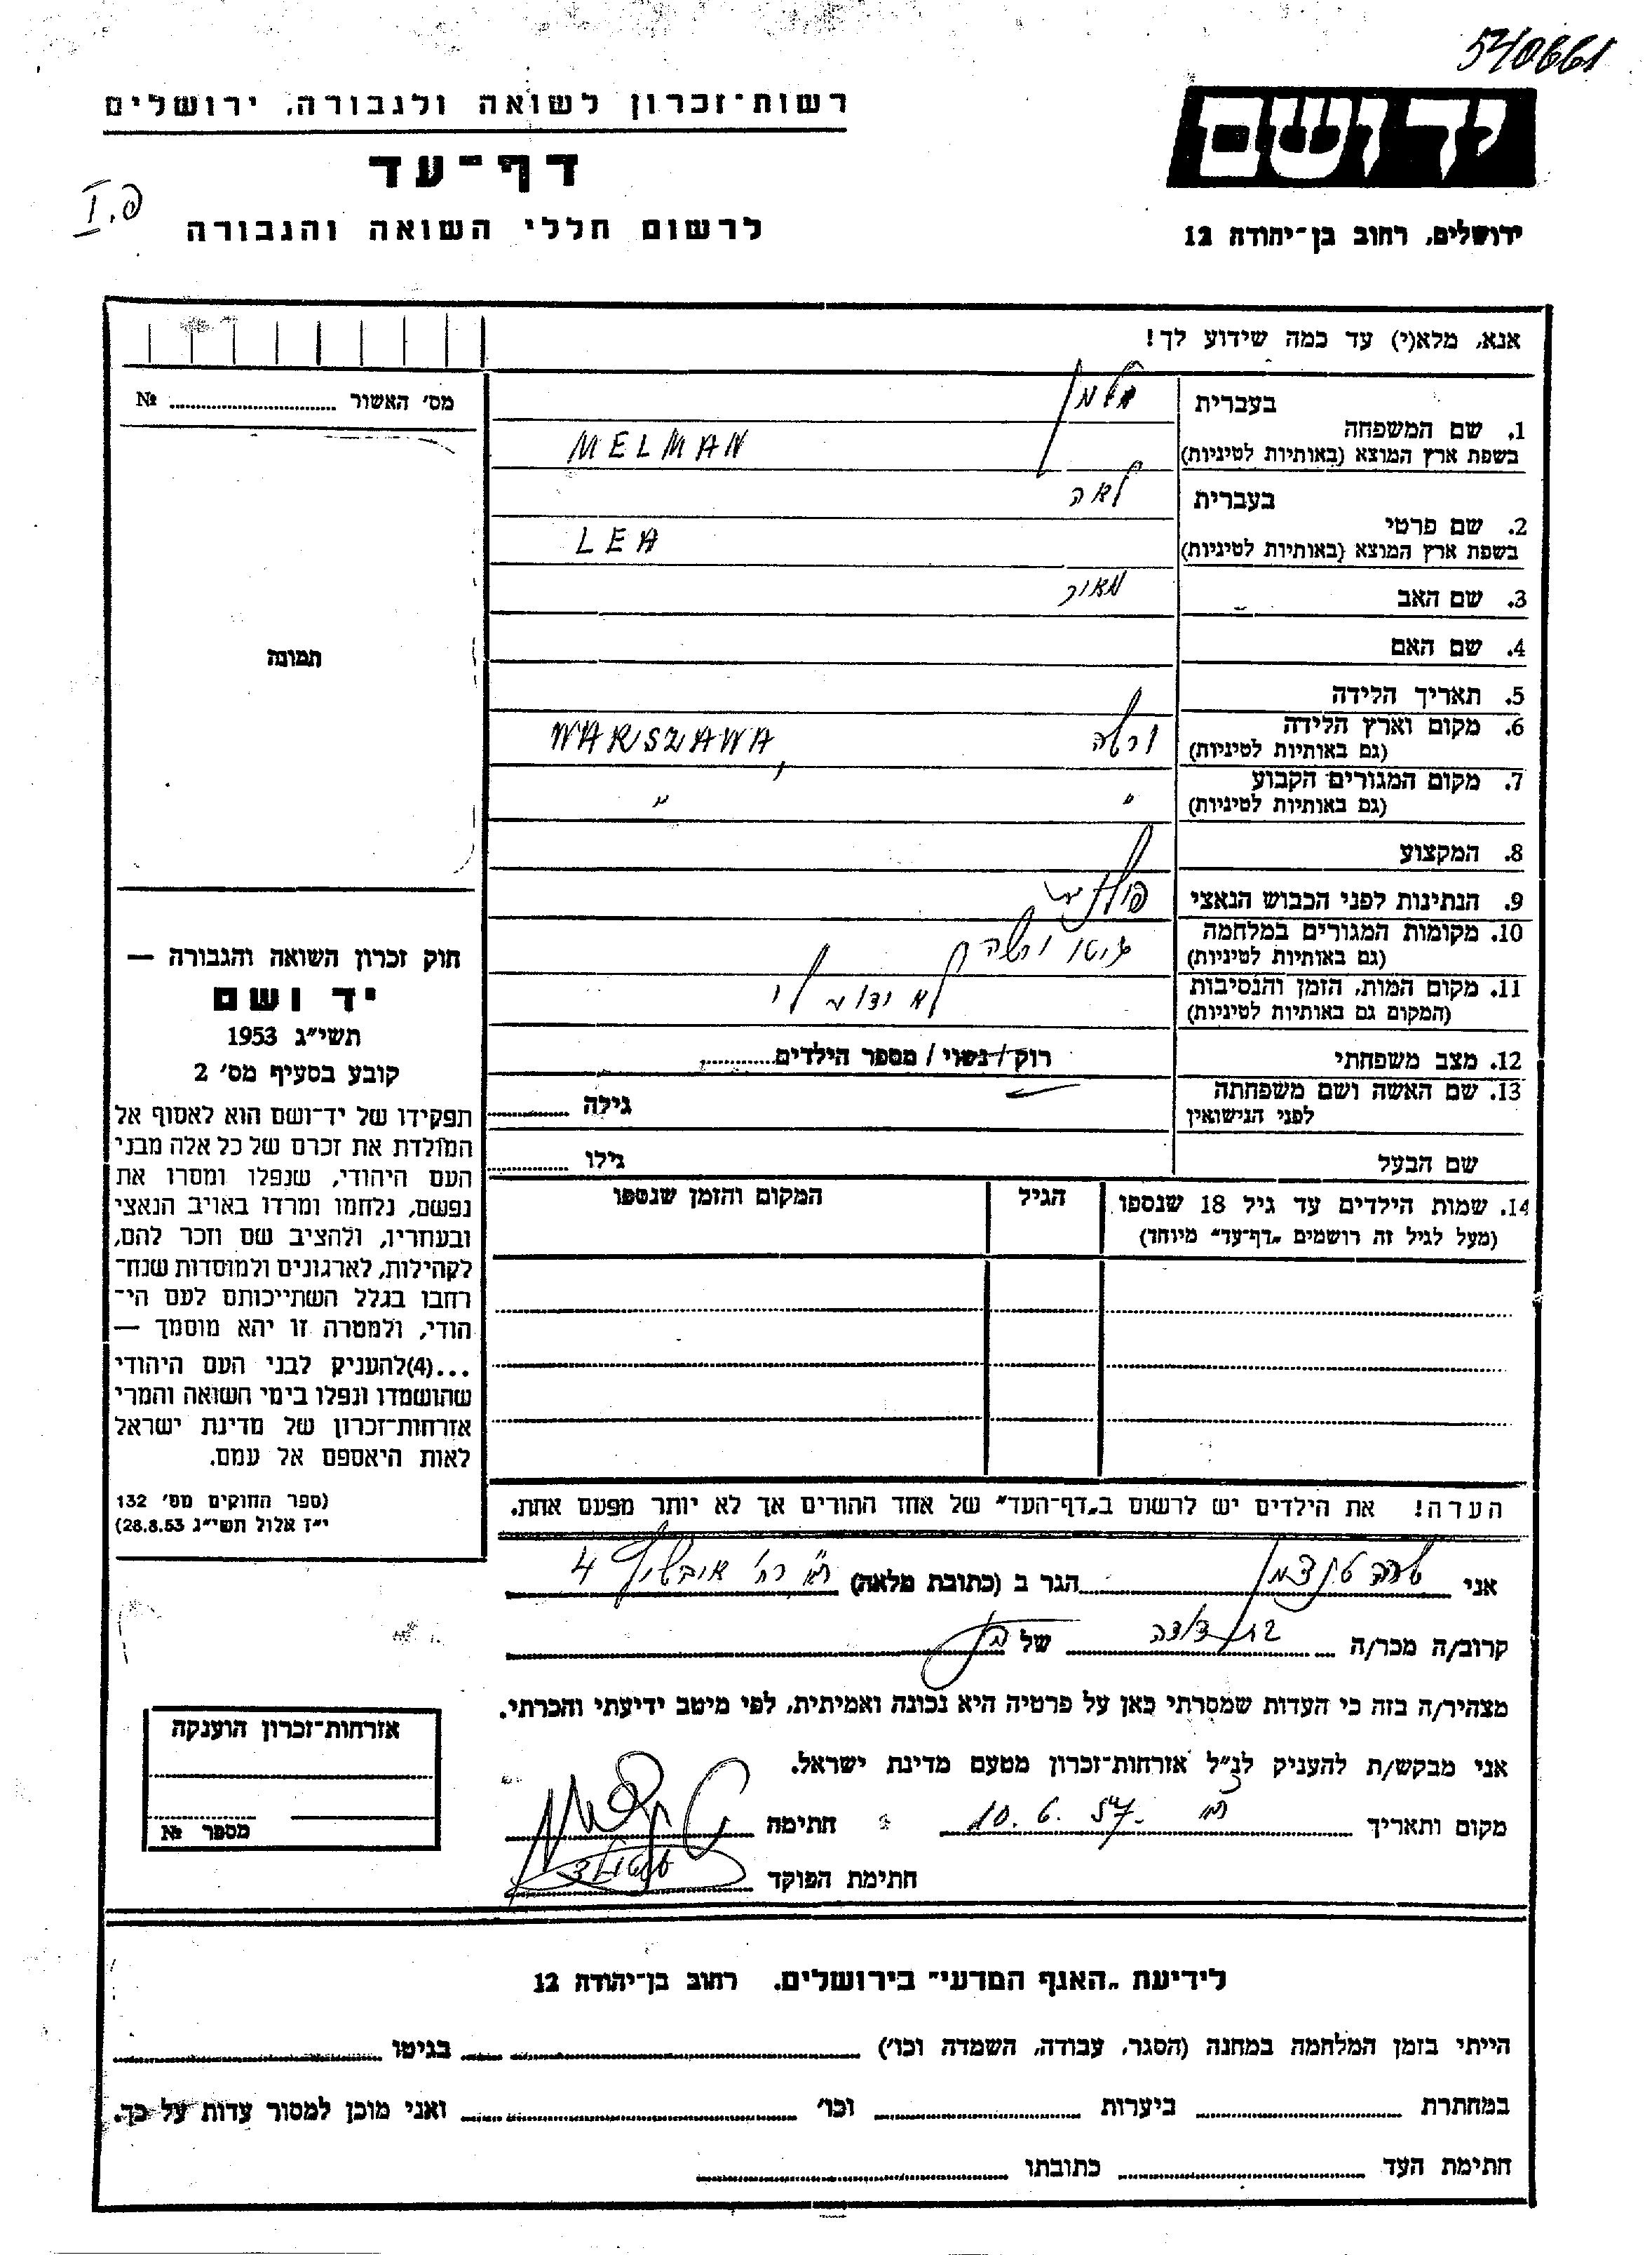 540661
רשות־זכרון לשואה ולגבורה, ירושלים
ידושם
דף־עד
I.פ
לרשום חללי השואה והגבורה
ירושלים, רחוב בן־יהודה 12
אנא, מלא(י) עד כמה שידוע לך!
מס׳ האשור ........ №
בעברית מלמן
1. שם המשפחה
בשפת ארץ המוצא (באותיות לטיניות) MELMAN
בעברית לאה
2. שם פרטי
בשפת ארץ המוצא (באותיות לטיניות) LEA
3. שם האב מאיר
4. שם האם
תמונה
5. תאריך הלידה
6. מקום וארץ הלידה
(גם באותיות לטיניות) ורשה WARSZAWA,
7. מקום המגורים הקבוע
(גם באותיות לטיניות) " "
8. המקצוע
9. הנתינות לפני הכבוש הנאצי פולנית
10. מקומות המגורים במלחמה
(גם באותיות לטיניות) גיטו ורשה
11. מקום המות, הזמן והנסיבות
(המקום גם באותיות לטיניות) לא ידוע לי
12. מצב משפחתי רוק / נשוי / מספר הילדים........
13. שם האשה ושם משפחתה
לפני הנישואין גילה ........
שם הבעל גילו ........
14. שמות הילדים עד גיל 18 שנספו הגיל המקום והזמן שנספו
(מעל לגיל זה רושמים „דף־עד" מיוחד)
חוק זכרון השואה והגבורה —
יד ושם
תשי״ג 1953
קובע בסעיף מס׳ 2
תפקידו של יד־ושם הוא לאסוף אל
המולדת את זכרם של כל אלה מבני
העם היהודי, שנפלו ומסרו את
נפשם, נלחמו ומרדו באויב הנאצי
ובעוזריו, ולהציב שם וזכר להם,
לקהילות, לארגונים ולמוסדות שנח־
רחבו בגלל השתייכותם לעם הי־
הודי, ולמטרה זו יהא מוסמך —
...(4)להעניק לבני העם היהודי
שהושמדו ונפלו בימי השואה והמרי
אזרחות־זכרון של מדינת ישראל
לאות היאספם אל עמם.
(ספר החוקים מס׳ 132
י״ז אלול תשי״ג 28.8.53)
הערה! את הילדים יש לרשום ב„דף־העד" של אחד ההורים אך לא יותר מפעם אחת.
אני הגר ב (כתובת מלאה) רח׳ 4
קרוב/ה מכר/ה בת דודה של
מצהיר/ה בזה כי העדות שמסרתי כאן על פרטיה היא נכונה ואמיתית, לפי מיטב ידיעתי והכרתי.
אני מבקש/ת להעניק לנ״ל אזרחות־זכרון מטעם מדינת ישראל.
מקום ותאריך 10.6.57 חתימה
חתימת הפוקד
אזרחות־זכרון הוענקה
מספר №
לידיעת „האגף המדעי" בירושלים. רחוב בן־יהודה 12
הייתי בזמן המלחמה במחנה (הסגר, עבודה, השמדה וכו׳) ........ בגיטו ........
במחתרת ........ ביערות ........ וכו׳ ........ ואני מוכן למסור עדות על כך.
חתימת העד ........ כתובתו ........